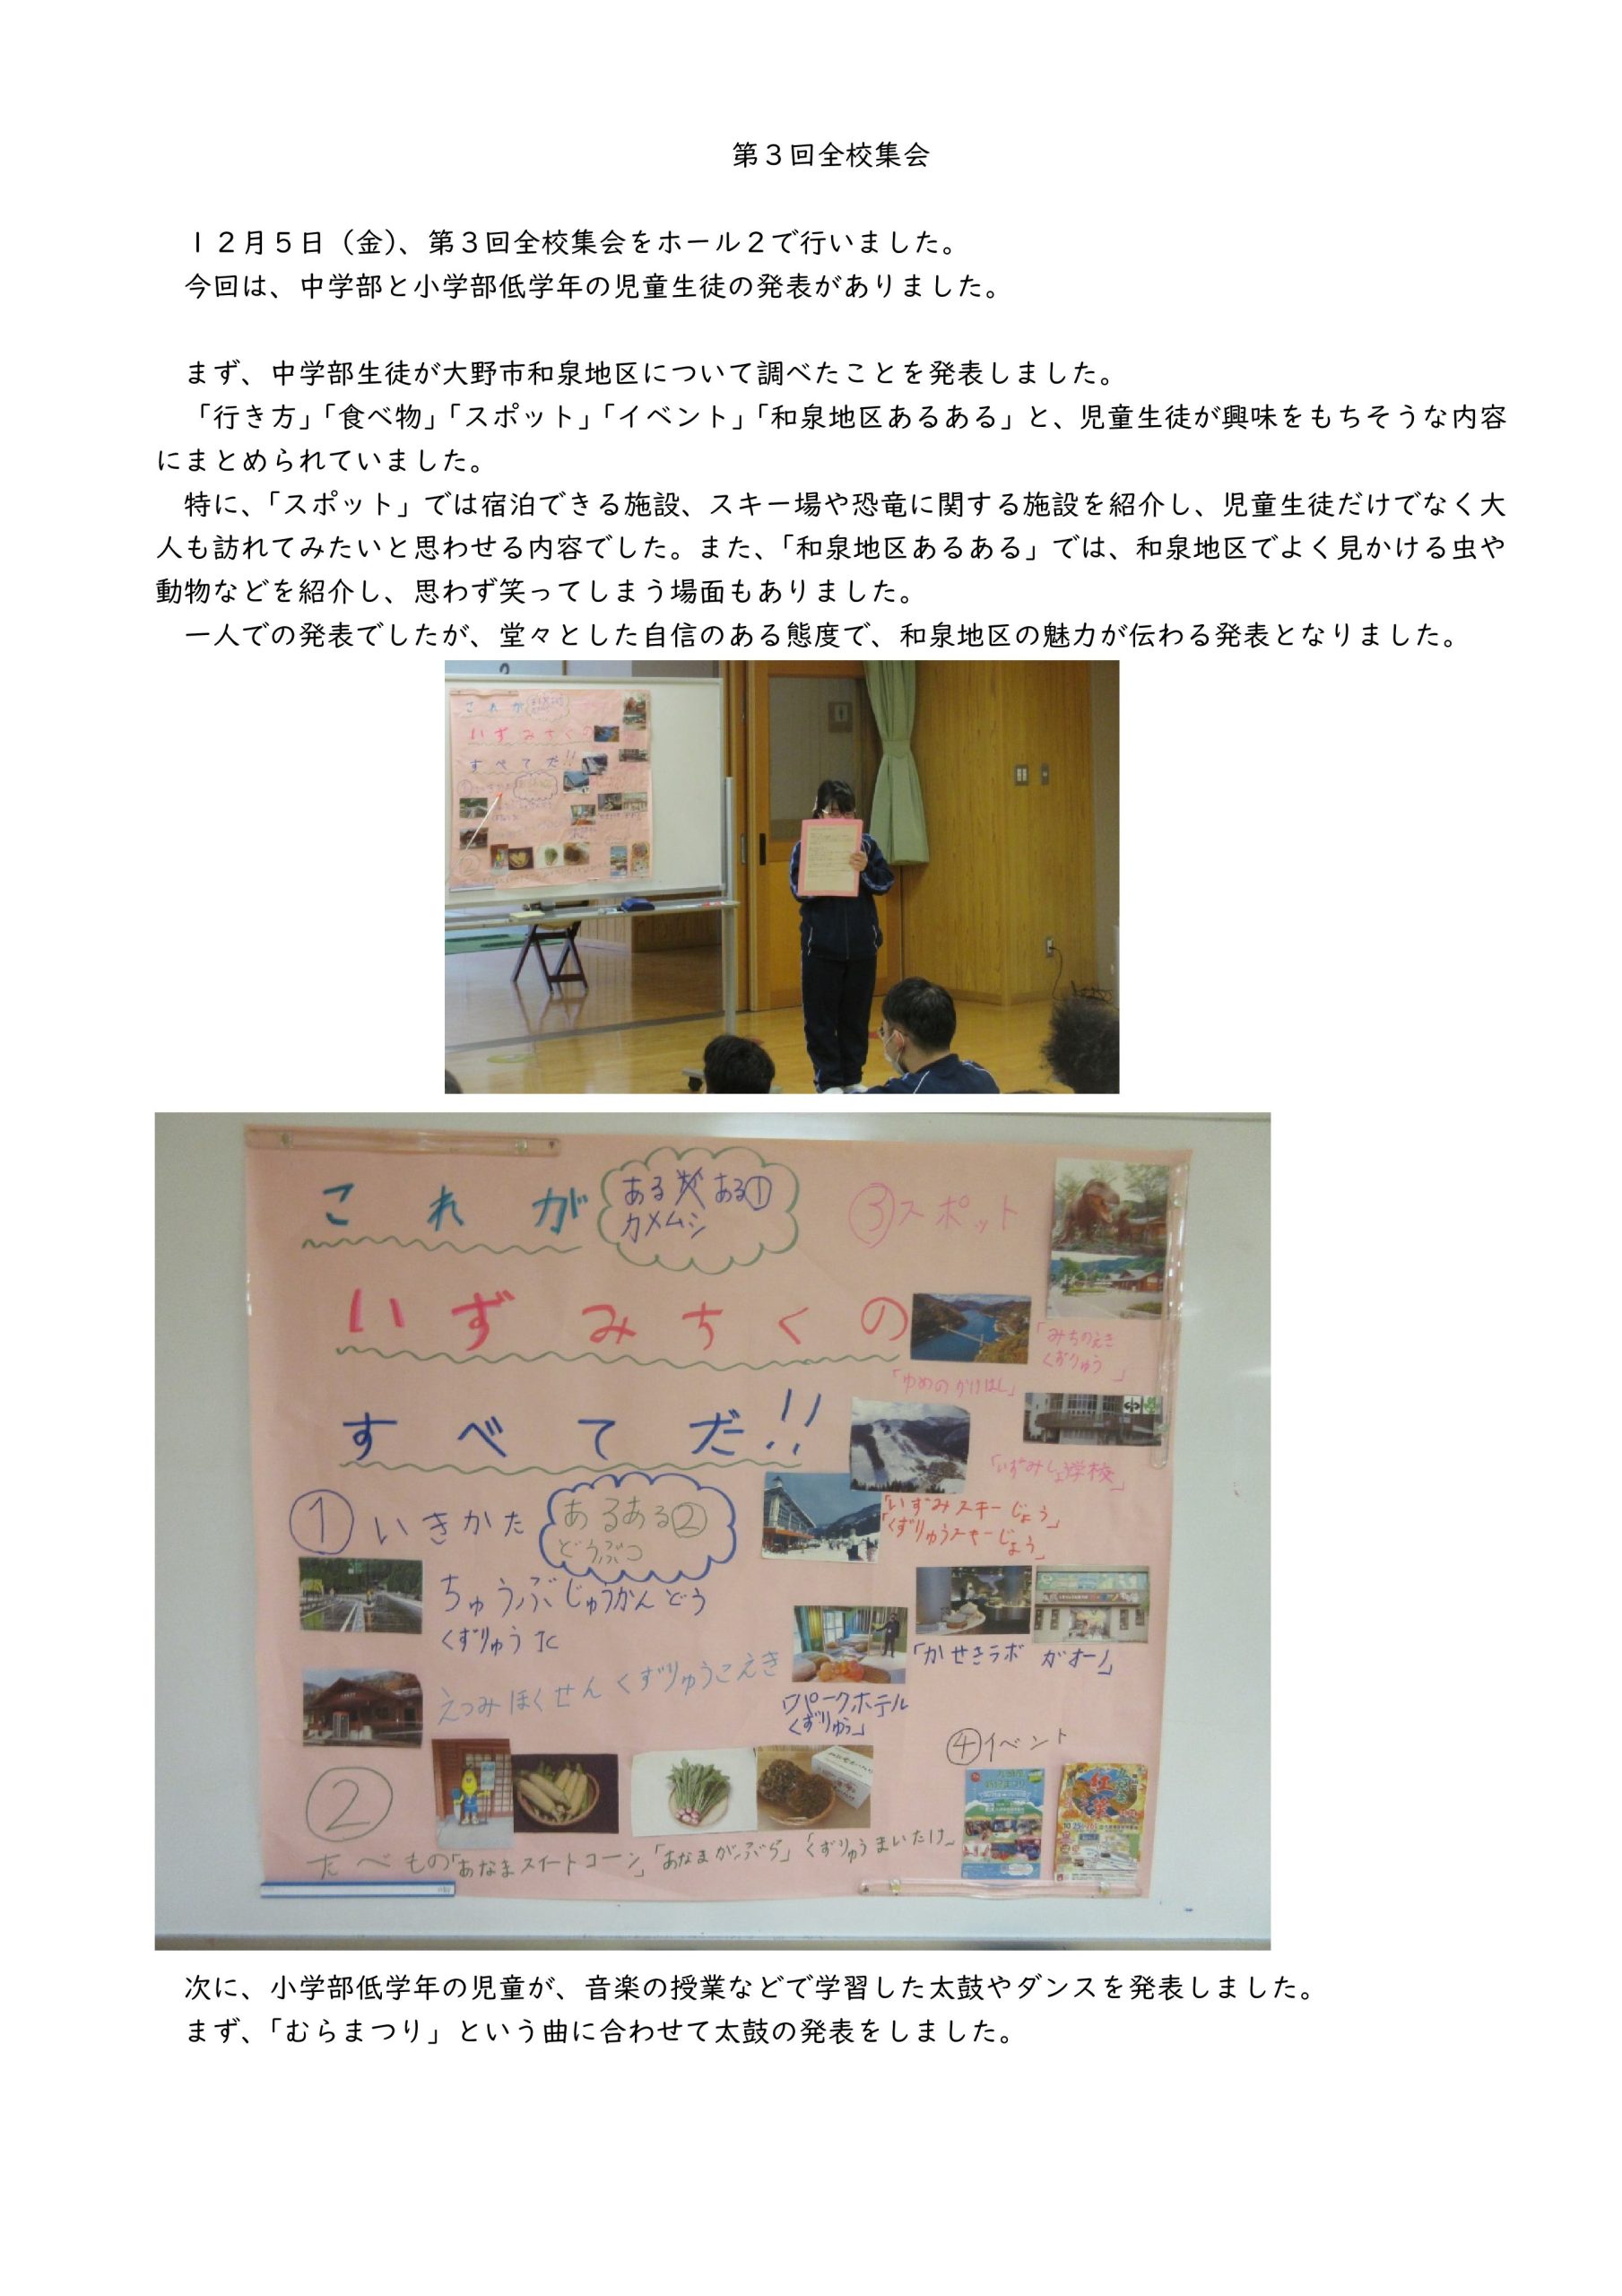 第３回全校集会
１２月５日（金）、第３回全校集会をホール２で行いました。
今回は、中学部と小学部低学年の児童生徒の発表がありました。
まず、中学部生徒が大野市和泉地区について調べたことを発表しました。
「行き方」「食べ物」「スポット」「イベント」「和泉地区あるある」と、児童生徒が興味をもちそうな内容
にまとめられていました。
特に、「スポット」では宿泊できる施設、スキー場や恐竜に関する施設を紹介し、児童生徒だけでなく大
人も訪れてみたいと思わせる内容でした。また、「和泉地区あるある」では、和泉地区でよく見かける虫や
動物などを紹介し、思わず笑ってしまう場面もありました。
一人での発表でしたが、堂々とした自信のある態度で、和泉地区の魅力が伝わる発表となりました。
これが
いずみちくの
すべてだ!!
これが
ある ある①
カメムシ
③スポット
いずみちくの
「みちのえき
くずりゅう」
「ゆめのかけはし」
すべてだ!!
「いずみしょう学校」
「いずみスキーじょう」
「くずりゅうスキーじょう」
①いきかた
あるある②
どうぶつ
ちゅうぶじゅうかんどう
くずりゅう
「かせきラボ ガオー」
えつみほくせんくずりゅうこえき
「パークホテル
くずりゅう」
④イベント
②
たべもの「あなまスイートコーン」「あなまがぶら」「くずりゅうまいたけ」
次に、小学部低学年の児童が、音楽の授業などで学習した太鼓やダンスを発表しました。
まず、「むらまつり」という曲に合わせて太鼓の発表をしました。